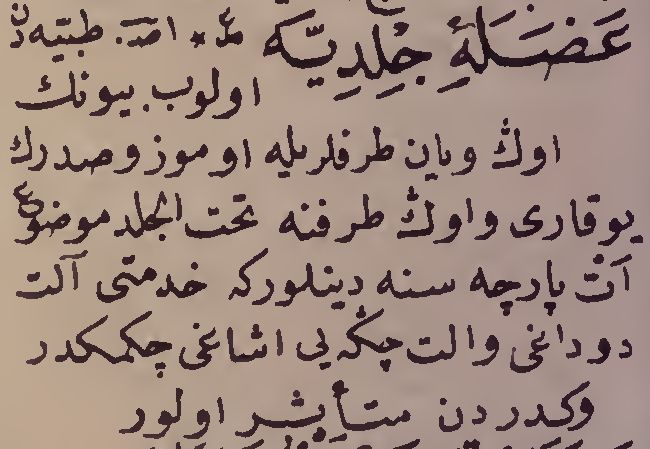 عَضَلَهٔ جِلدِيّه ع * اصـ. طبیه‌دن
اولوب بیونك
اوڭ ویان طرفلریله اوموز وصدرك
یوقاری واوڭ طرفنه تحت الجلد موضوع
اَتْ پارچه سنه دینلورکه خدمتی آلت
دوداغی والت چڭه یی اشاغی چکمکدر
وکدردن متأثر اولور